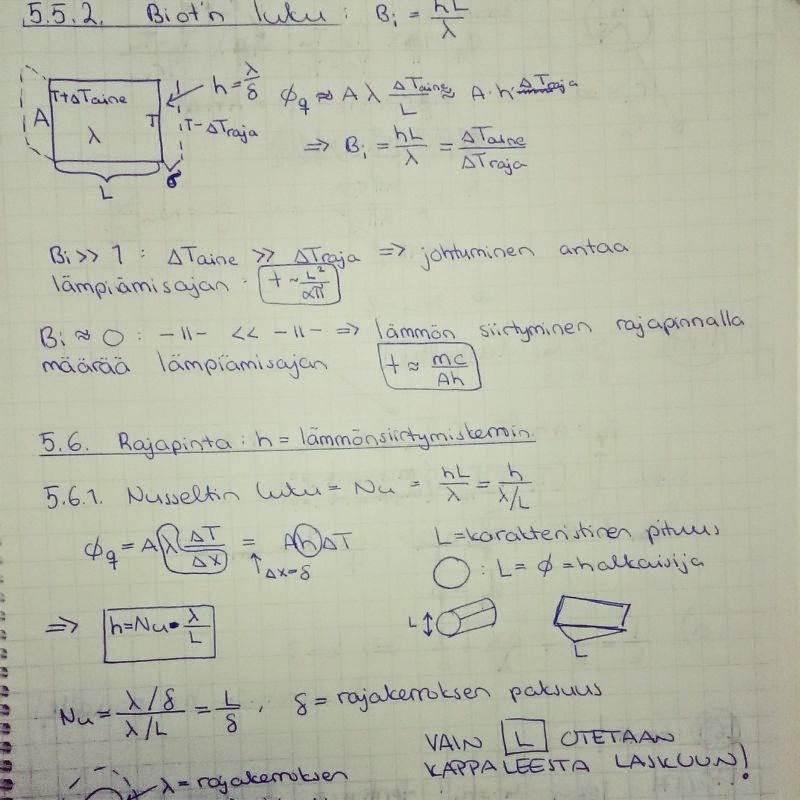 5.5.2. Biot'n luku : Bi = hL/λ
T+ΔTaine
h = λ/δ
ϕq ≈ A λ ΔTaine/L ≈ A·h ΔTraja
A
T
T-ΔTraja
λ
=> Bi = hL/λ = ΔTaine/ΔTraja
L
δ
Bi >> 1 : ΔTaine >> ΔTraja => johtuminen antaa
lämpiämisajan : t ~ L²/απ
Bi ≈ 0 : -||- << -||- => lämmön siirtyminen rajapinnalla
määrää lämpiämisajan t ≈ mc/Ah
5.6. Rajapinta : h = lämmönsiirtymiskerroin.
5.6.1. Nusseltin luku = Nu = hL/λ = h/(λ/L)
ϕq = Aλ ΔT/Δx = AhΔT
Δx=δ
L=karakteristinen pituus
: L = ∅ = halkaisija
=> h = Nu · λ/L
L
L
Nu = (λ/δ)/(λ/L) = L/δ , δ = rajakerroksen paksuus
VAIN L OTETAAN
KAPPALEESTA LASKUUN!
λ = rajakerroksen